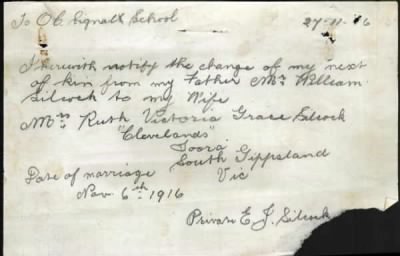 To O.C. Signall School 27-11-16
I herewith notify the change of my next
of kin from my Father Mr William
Silcock to my Wife
Mrs Ruth Victoria Grace Silcock
"Clevelands"
Toora
South Gippsland
Vic
Date of marriage
Nov. 6th 1916
Private E. J. Silcock